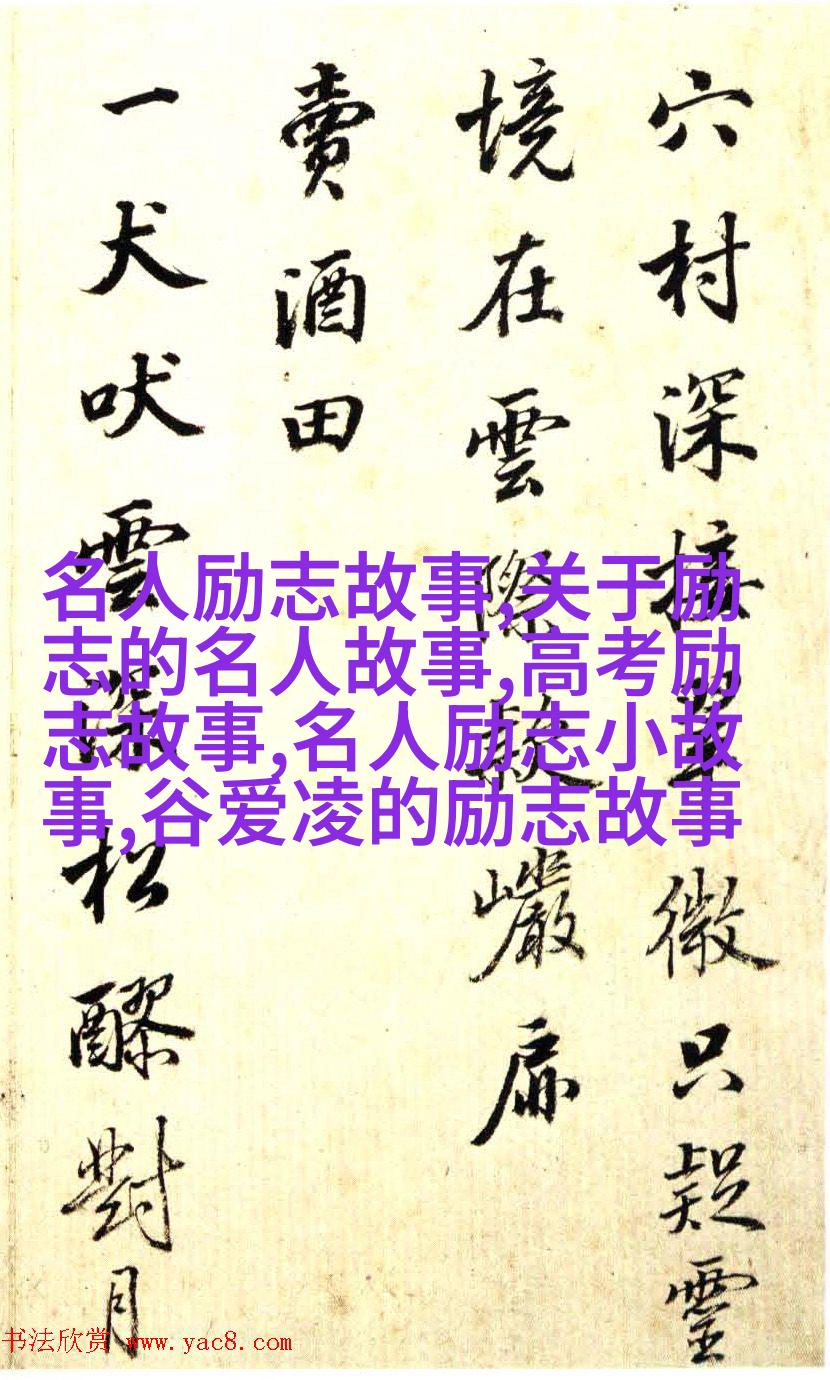 穴村深接翠微只疑靈
境在雲際敲巖扉
賣酒田
一犬吠雲深松醪對月
名人励志故事,关于励
志的名人故事,高考励
志故事,名人励志小故
事,谷爱凌的励志故事
书法欣赏 www.yac8.com